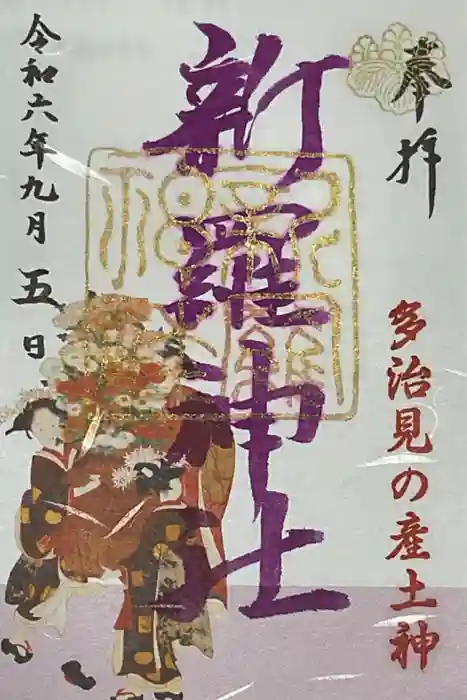 奉拝
多治見の産土神
新羅神社
令和六年九月五日